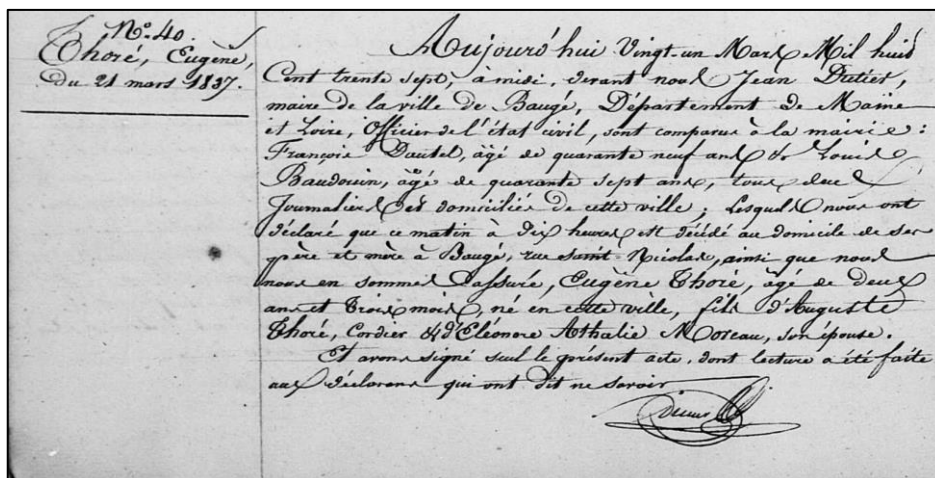 N.° 40.
Thoré, Eugène,
Du 21 mars 1837.
Aujourd'hui Vingt-un Mars Mil huit
Cent trente sept, à midi, devant nous Jean
maire de la ville de Baugé, Département de Maine
et Loire, Officier de l'état civil, sont comparus à la mairie :
François Dautel, âgé de quarante neuf ans & Louis
Baudouin, âgé de quarante sept ans, tous deux
Journaliers et domiciliés de cette ville ; Lesquels nous ont
déclaré que ce matin à dix heures est décédé au domicile de ses
père et mère à Baugé, rue saint Nicolas, ainsi que nous
nous en sommes assuré, Eugène Thoré, âgé de deux
ans et trois mois, né en cette ville, fils d'Auguste
Thoré, Cordier & d'Eléonore Athalie Moreau, son épouse.
Et avons signé seul le présent acte, dont lecture a été faite
aux déclarans qui ont dit ne savoir